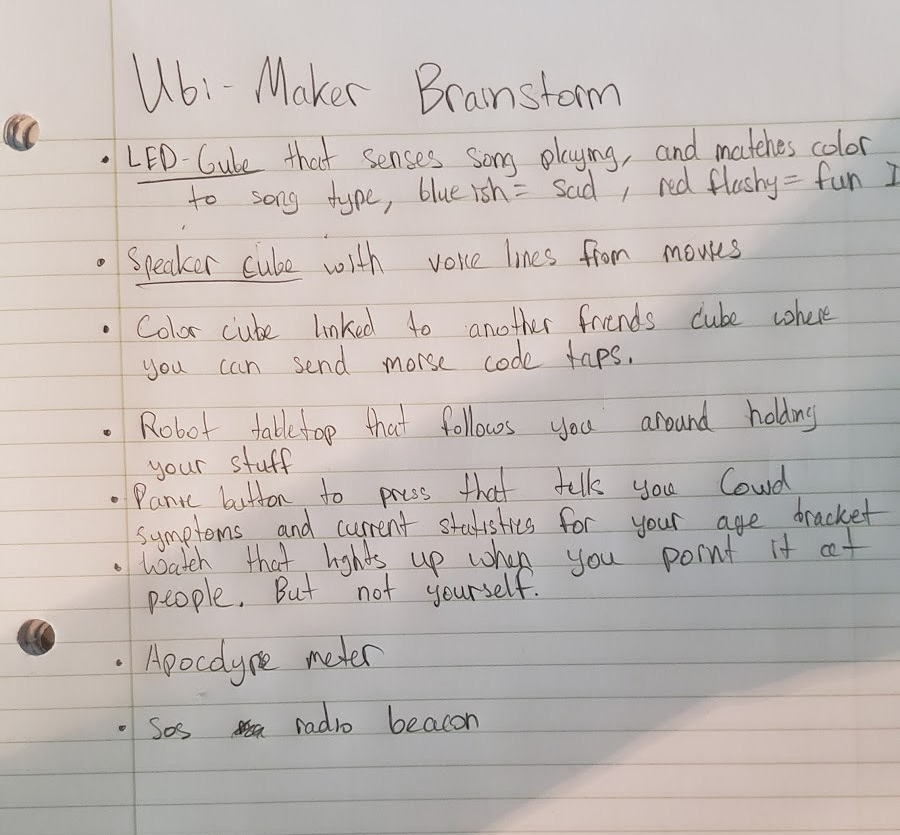 Ubi-Maker Brainstorm
• LED-Cube that senses song playing, and matches color
to song type, blueish = sad, red flashy = fun I
• Speaker cube with voice lines from movies
• Color cube linked to another friends cube where
you can send morse code taps.
• Robot tabletop that follows you around holding
your stuff
• Panic button to press that tells you Covid
symptoms and current statistics for your age bracket
• Watch that lights up when you point it at
people. But not yourself.
• Apocalypse meter
• Sos radio beacon